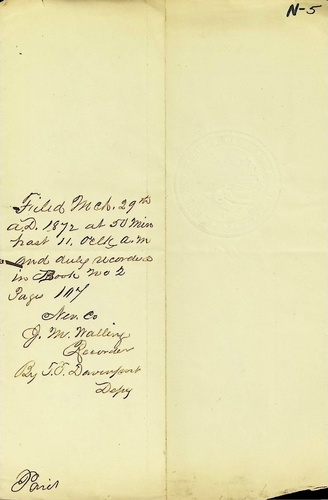 N-5
Filed Mch. 29th
A.D. 1872 at 50 min
past 11. Oclk a.m
and duly recorded
in Book No 2
Page 147
Nev. Co
J. M. Walling
Recorder
By T. T. Davenport
Depy